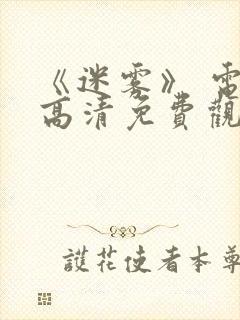 《迷雾》電
高清免費觀
護花使者本尊